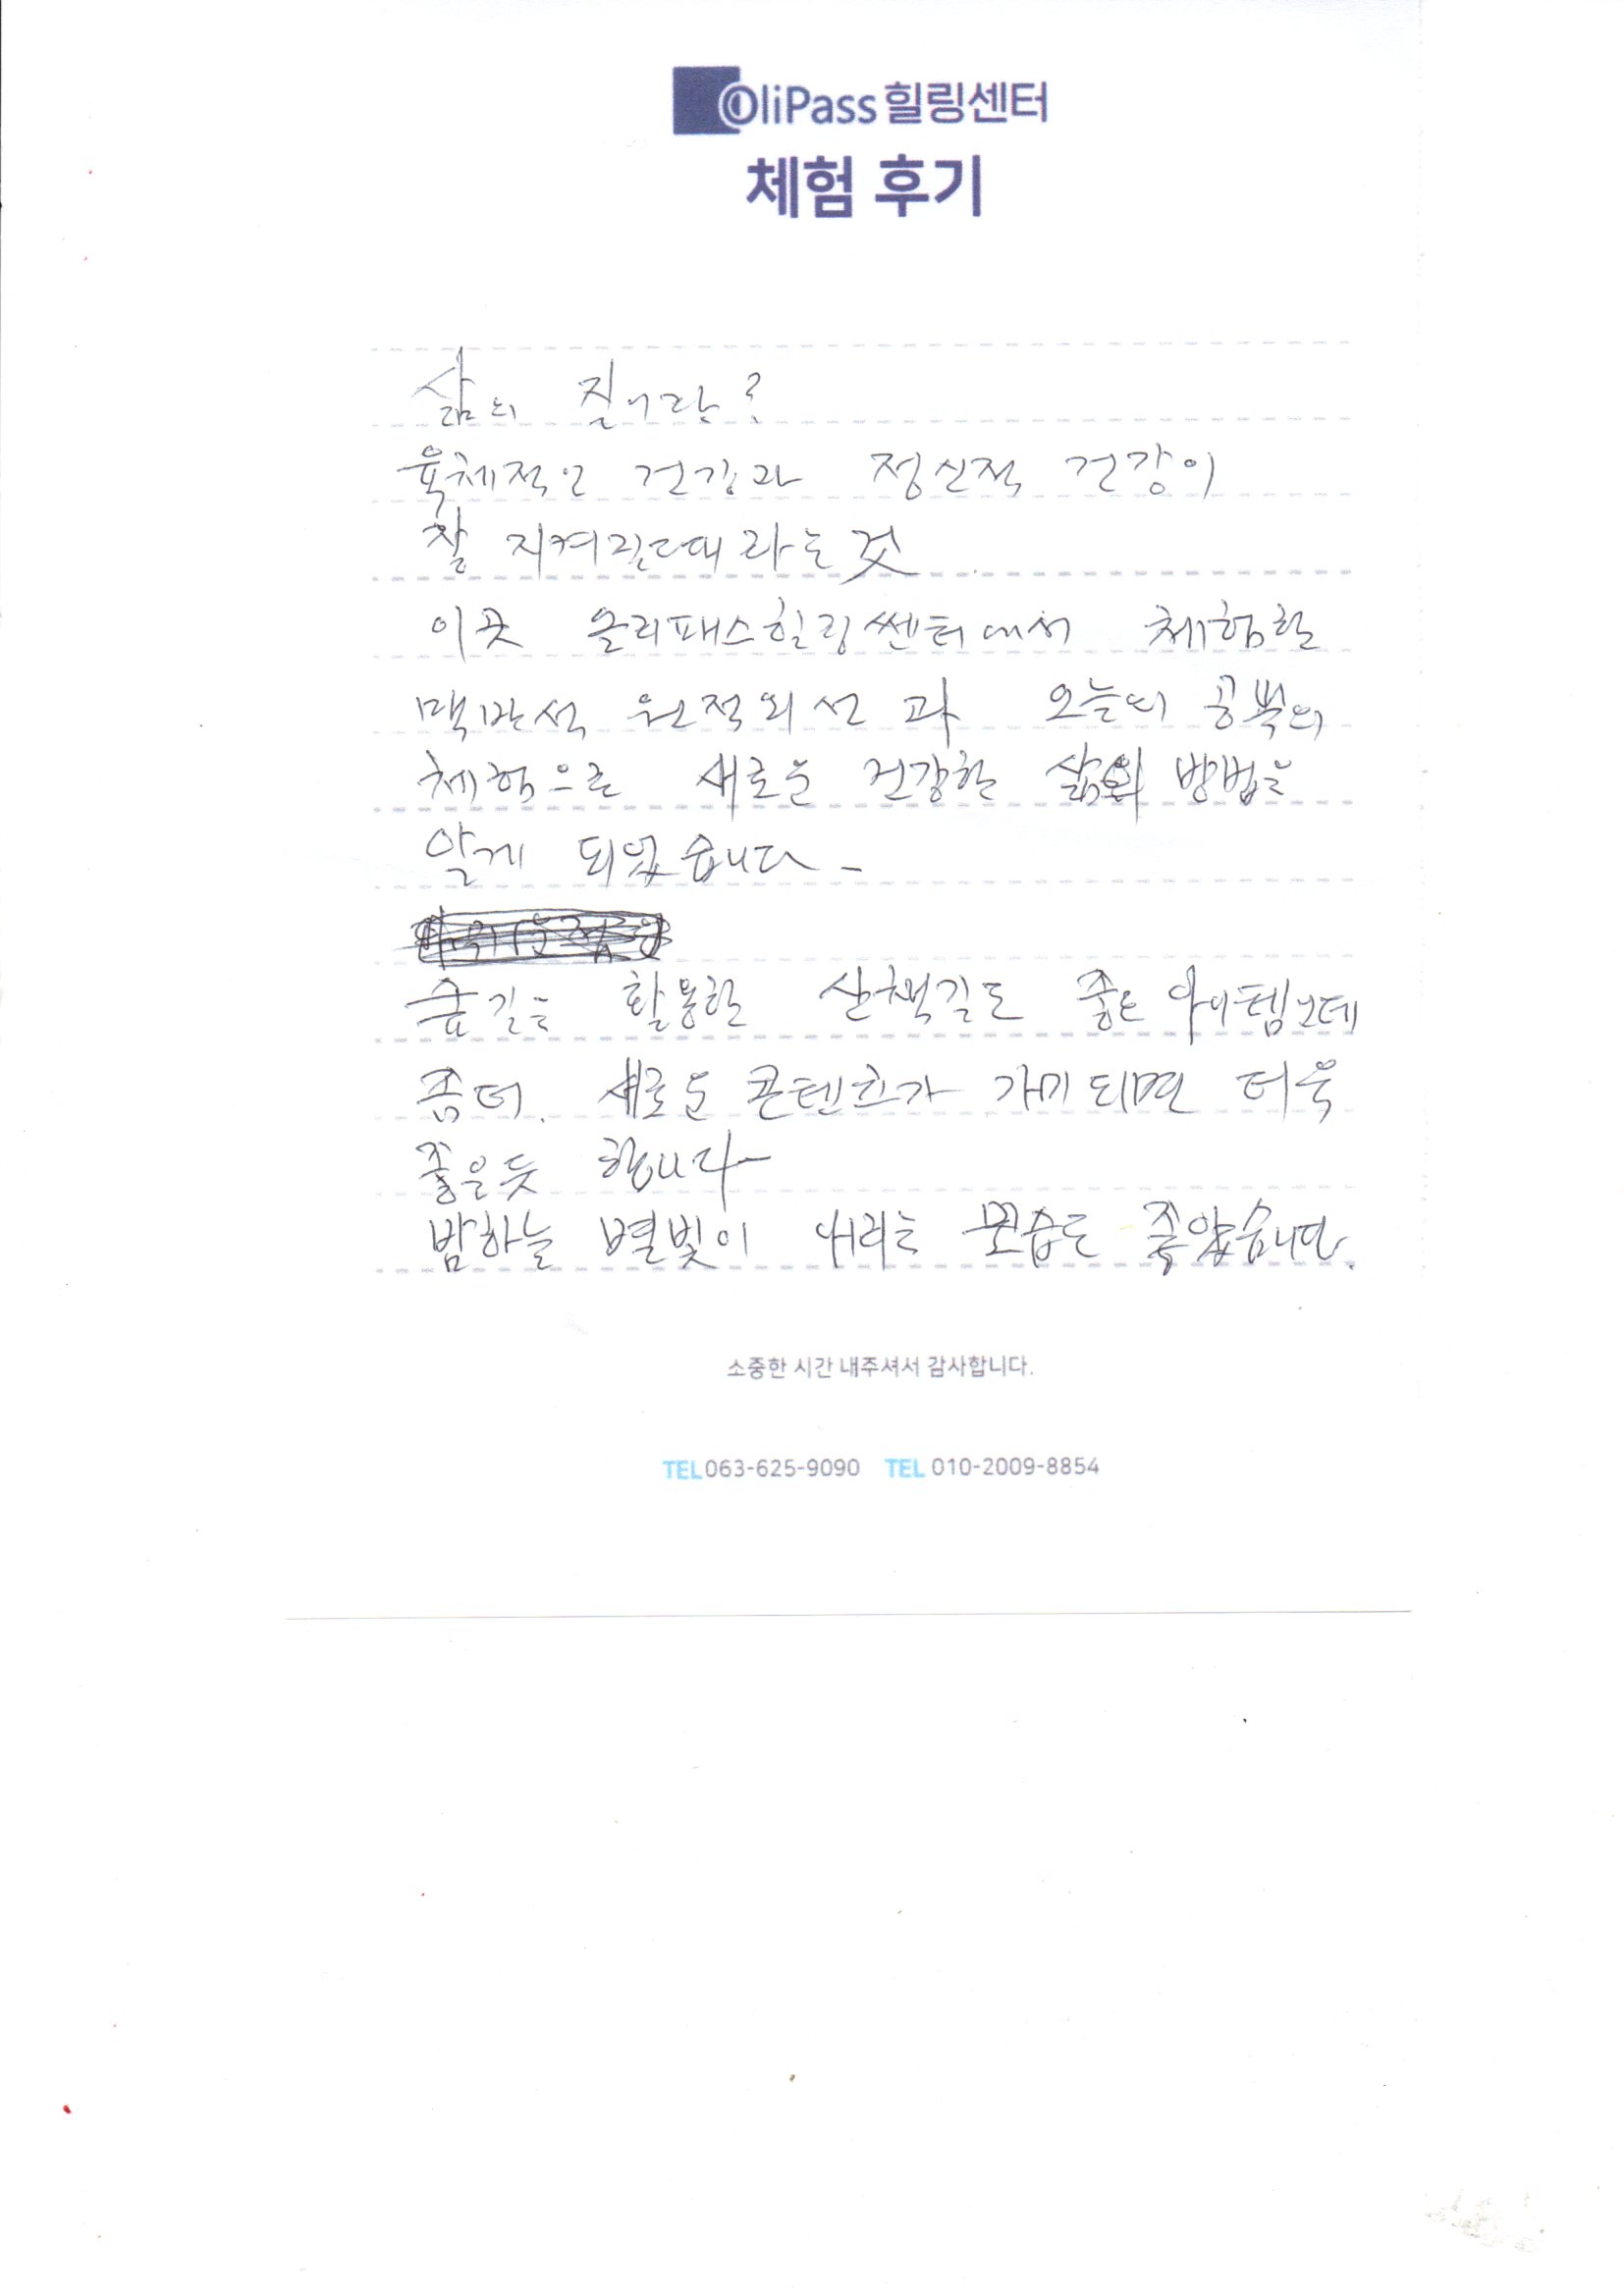 OliPass 힐링센터
체험 후기
삶의 질이란?
육체적인 건강과 정신적 건강이
잘 지켜질때 라는 것
이곳 올리패스힐링쎈터에서 체험한
맥반석 원적외선 과 오늘의 공복의
체험으로 새로운 건강한 삶의 방법을
알게 되었습니다
숲길을 활용한 산책길도 좋은 아이템인데
좀더. 새로운 콘텐츠가 가미되면 더욱
좋을듯 합니다
밤하늘 별빛이 내리는 모습도 좋았습니다.
소중한 시간 내주셔서 감사합니다.
TEL 063-625-9090 TEL 010-2009-8854